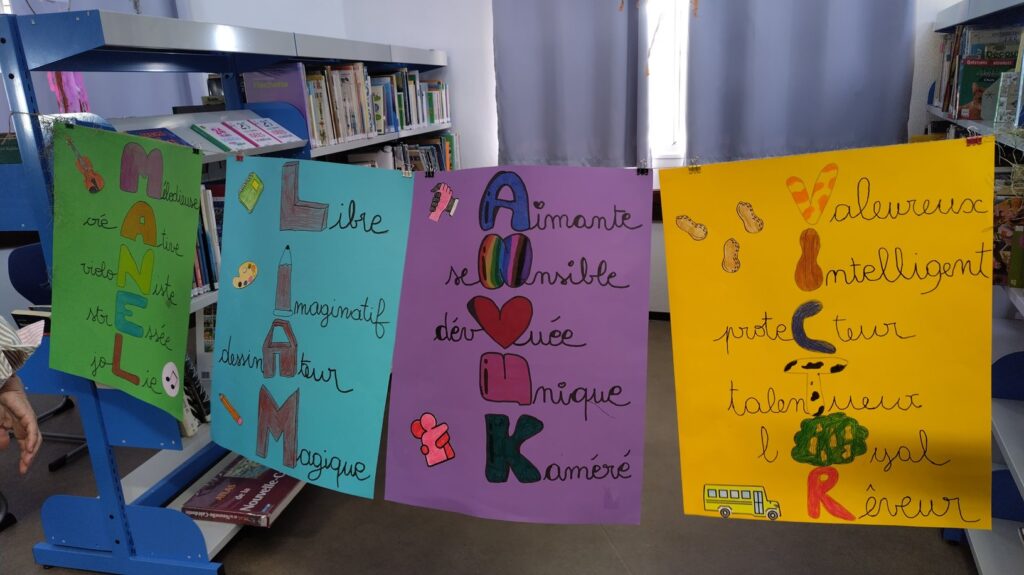 Mélodieuse
créAtive
violoNiste
strEssée
joLie
Libre
Imaginatif
dessinAteur
Magique
Aimante
seNsible
dévOuée
Unique
Kaméré
Valeureux
Intelligent
proteCteur
talenTueux
lOyal
Rêveur
ATLAS
de la Nouvelle-